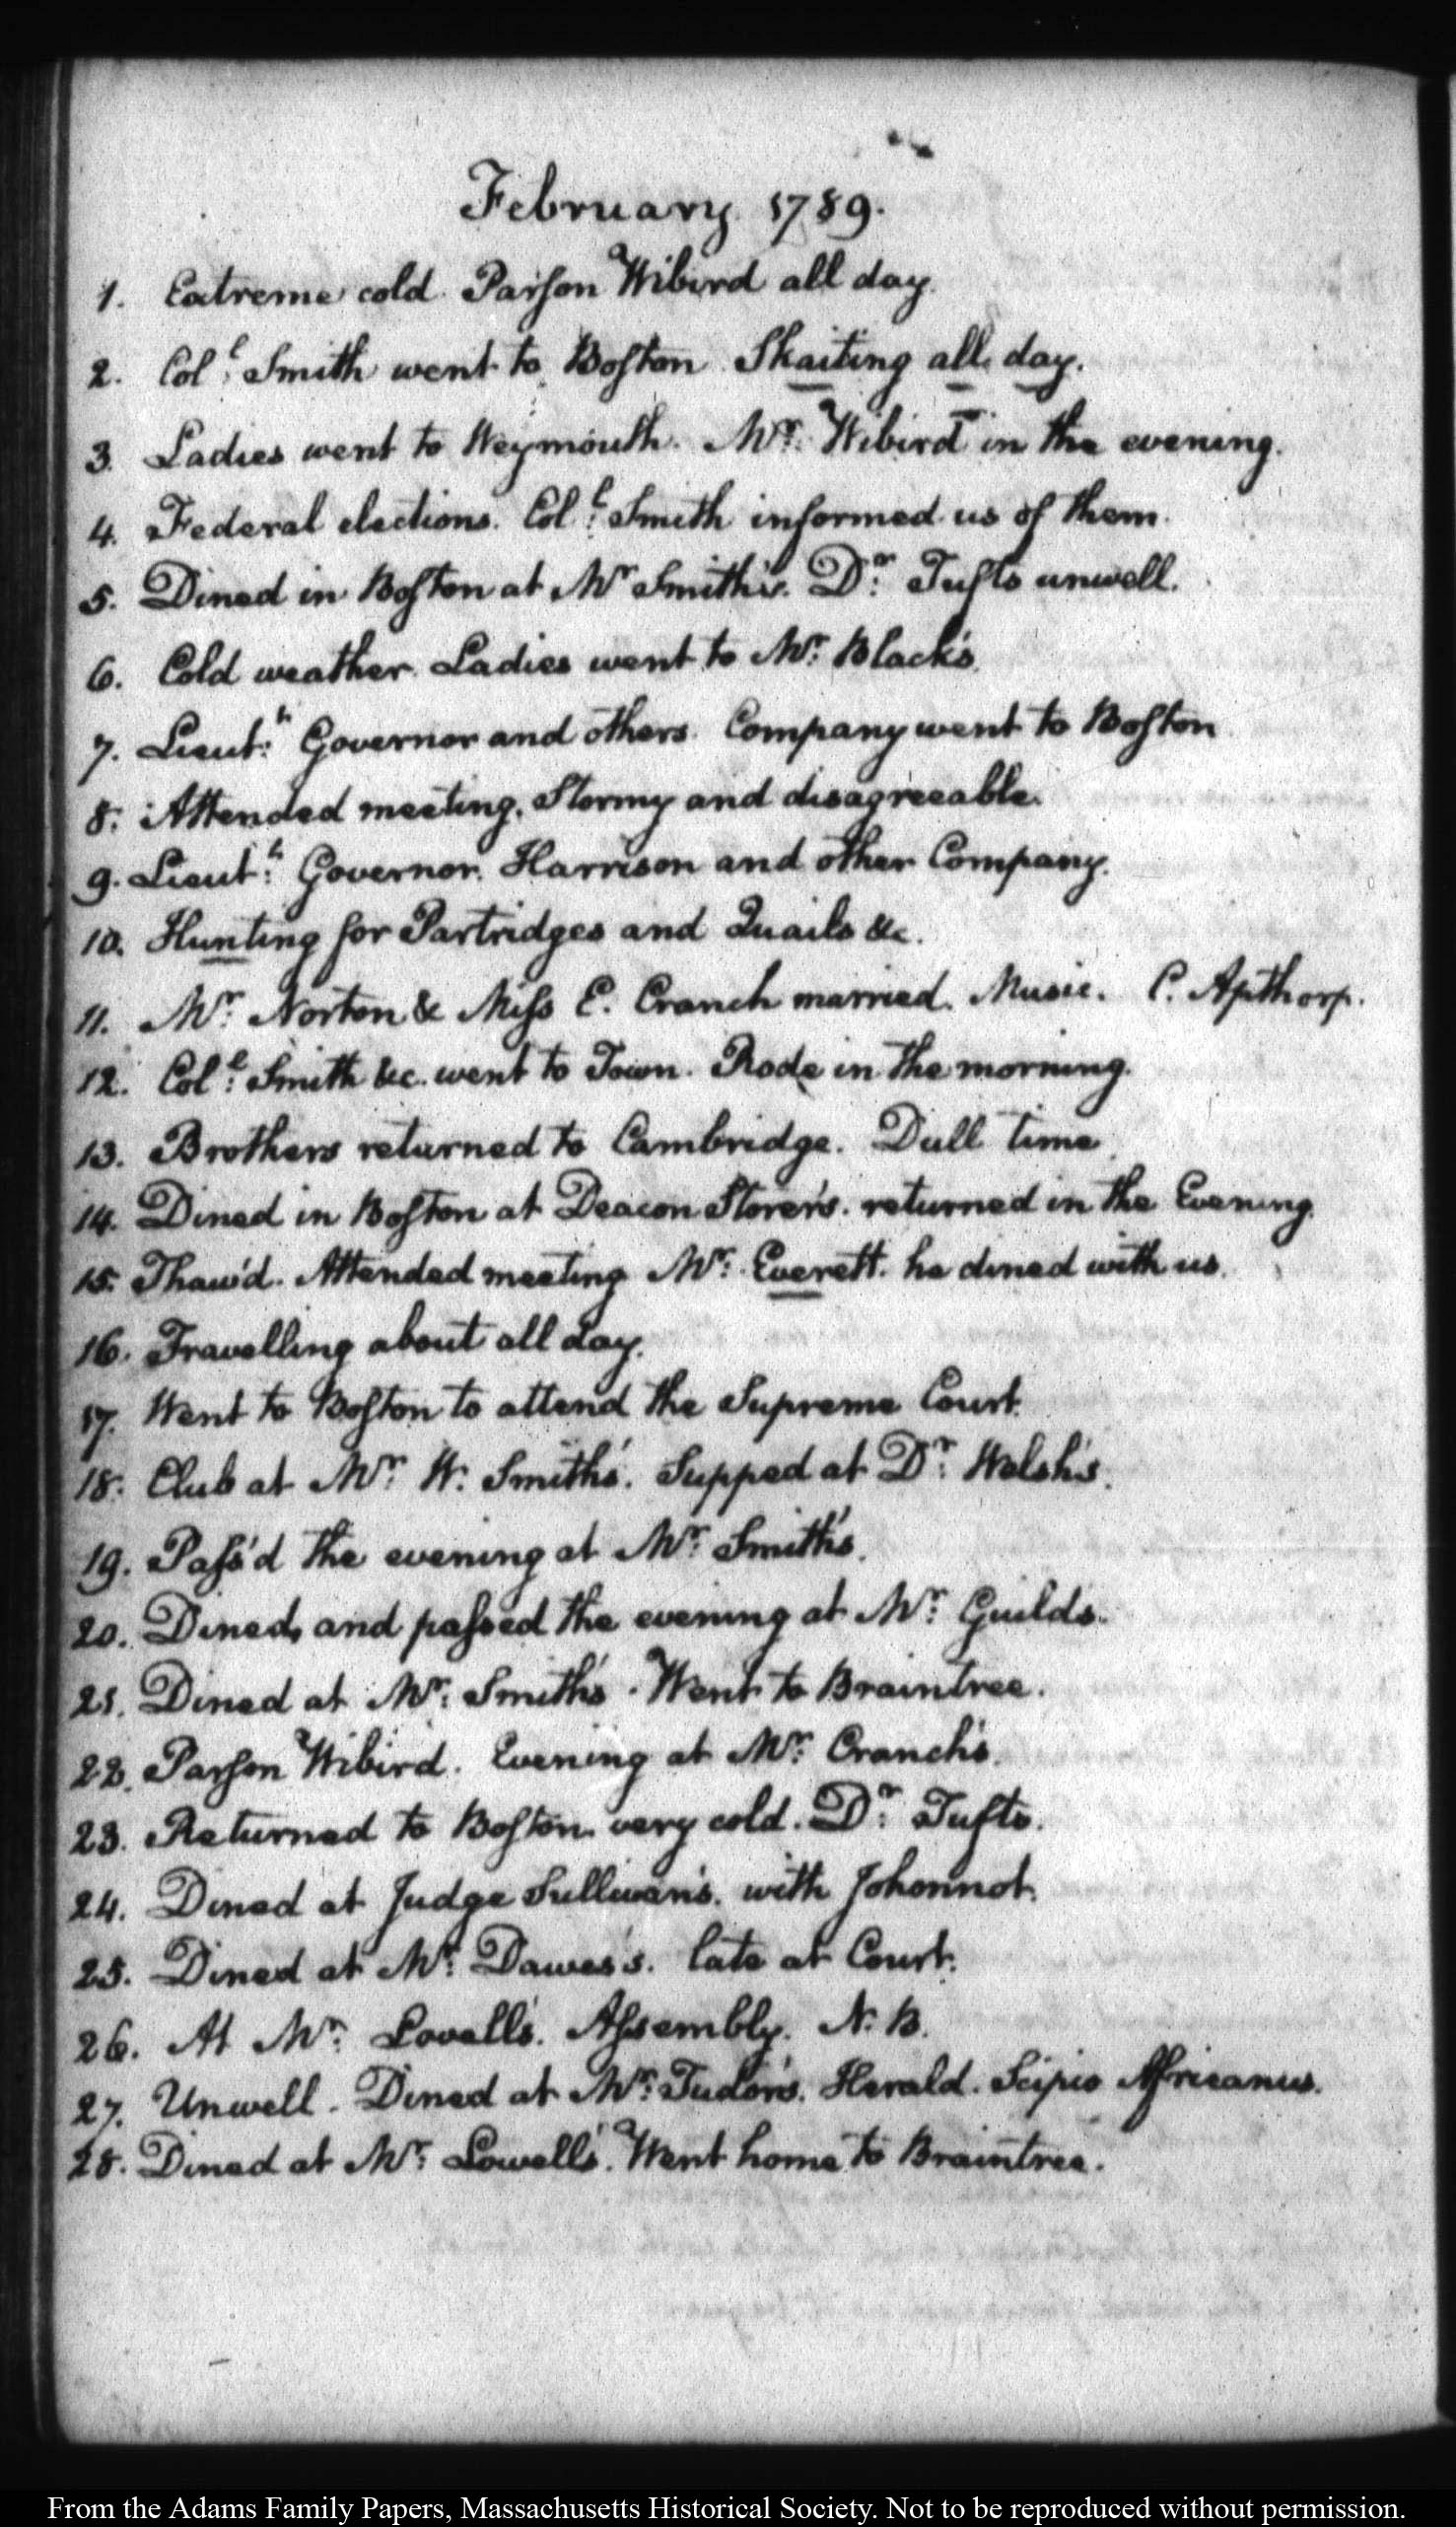 February 1789.
1. Extreme cold. Parson Wibird all day.
2. Col.l Smith went to Boston. Skaiting all day.
3. Ladies went to Weymouth. Mr. Wibird in the evening.
4. Federal elections. Col.l Smith informed us of them.
5. Dined in Boston at Mr Smith's. Dr. Tufts unwell.
6. Cold weather. Ladies went to Mr. Black's.
7. Lieut.t Governor and others. Company went to Boston
8. Attended meeting. Stormy and disagreeable.
9. Lieut.t Governor. Harrison and other Company.
10. Hunting for Partridges and Quails &c.
11. Mr. Norton & Miss E. Cranch married. Music. C. Apthorp.
12. Col.l Smith &c. went to Town. Rode in the morning.
13. Brothers returned to Cambridge. Dull time.
14. Dined in Boston at Deacon Storer's. returned in the Evening.
15. Thaw'd. Attended meeting Mr. Everett. he dined with us.
16. Travelling about all day.
17. Went to Boston to attend the Supreme Court.
18. Club at Mr. W. Smith's. Supped at Dr. Welsh's.
19. Pass'd the evening at Mr. Smith's.
20. Dined, and passed the evening at Mr. Guild's.
21. Dined at Mr. Smith's. Went to Braintree.
22. Parson Wibird. Evening at Mr. Cranch's.
23. Returned to Boston. very cold. Dr. Tufts.
24. Dined at Judge Sullivan's. with Johonnot.
25. Dined at Mr. Dawes's. late at Court.
26. At Mr. Lovell's. Assembly. N. B.
27. Unwell. Dined at Mr. Tudor's. Herald. Scipio Africanus.
28. Dined at Mr. Lowell's. Went home to Braintree.
From the Adams Family Papers, Massachusetts Historical Society. Not to be reproduced without permission.